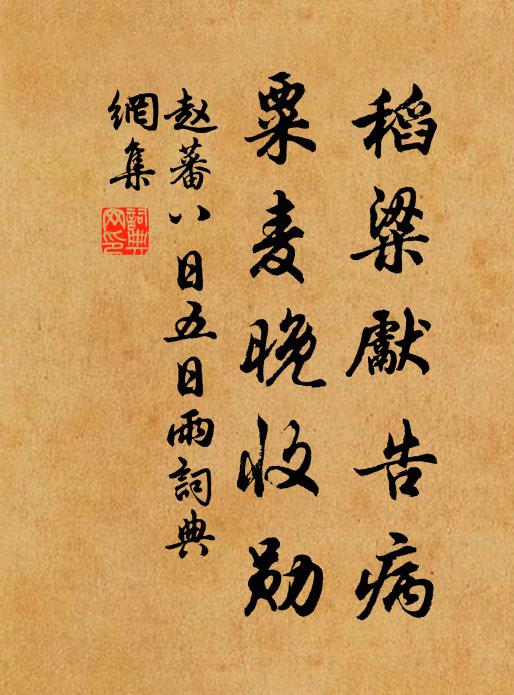 稻粱獻告病
粟麦晚收勋
赵蕃八日五日雨詞典
網集
詞典網印